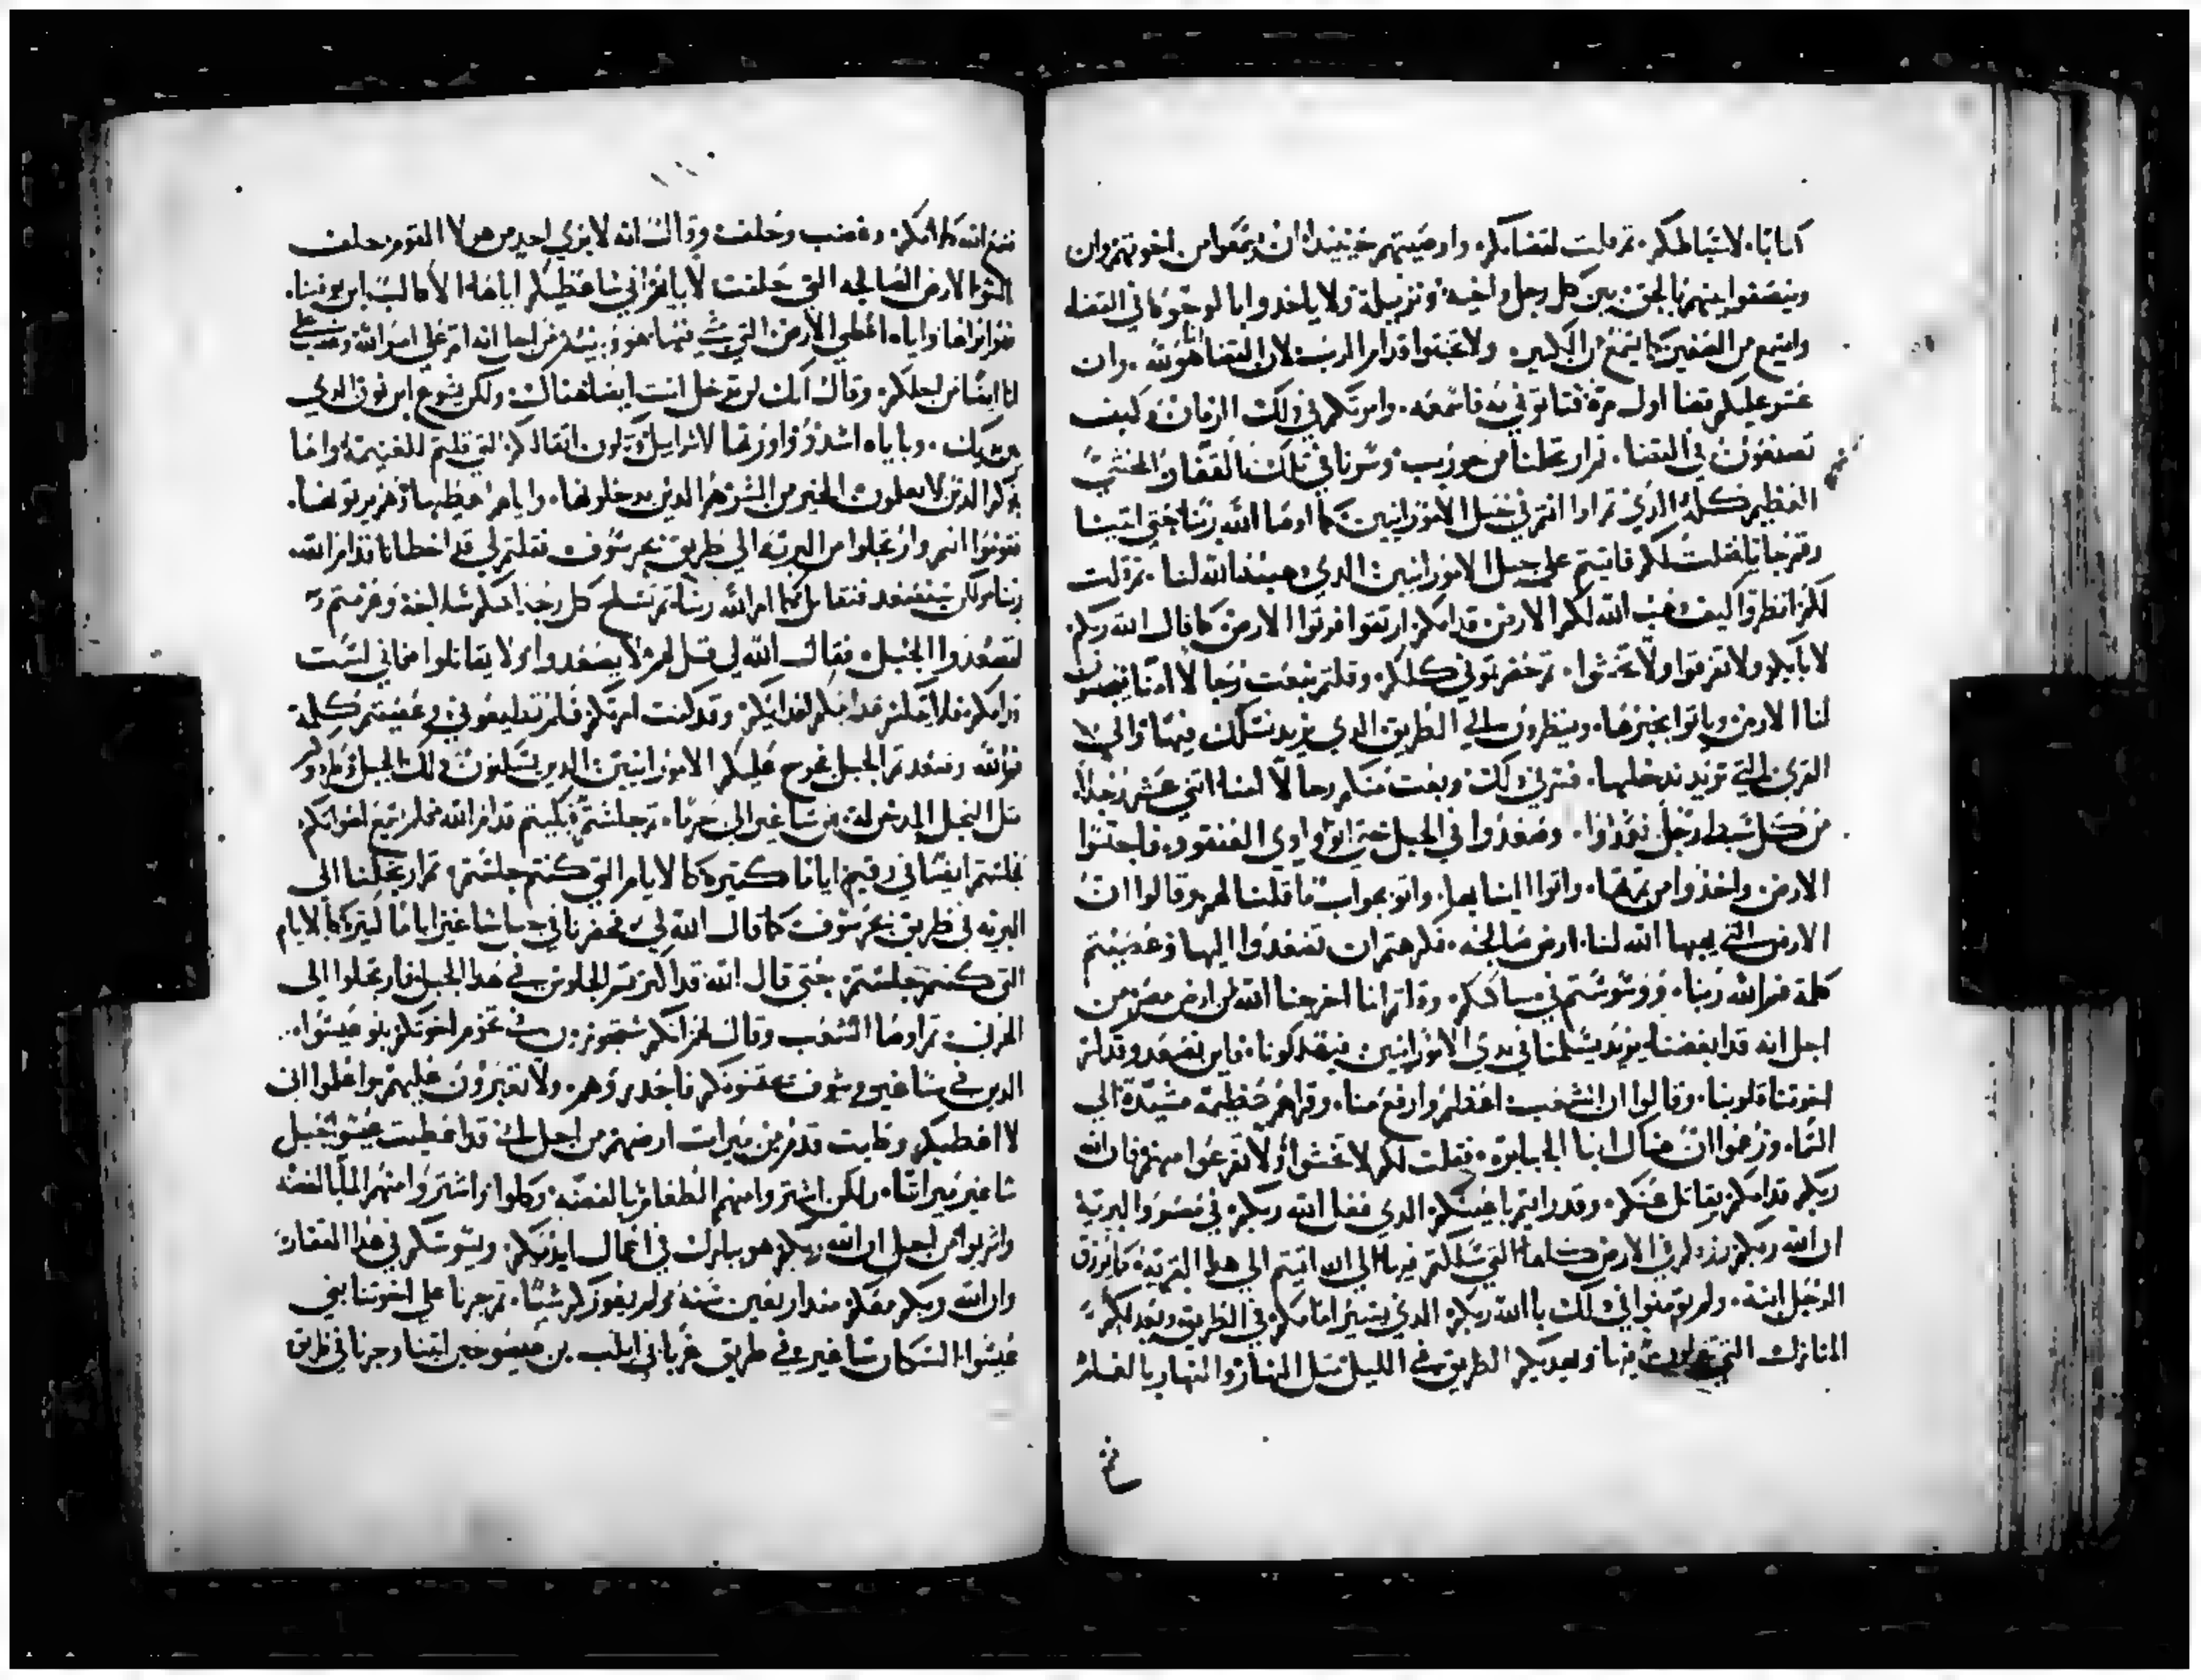 كتابا لاسباطكم. تم قلت لقضاتكم. واوصيتهم حينيذ ان يسمعوا من اخوتهم وان
وينصفوا بينهم بالحق. بين كل رجل واخيه ونزيله ولا ياخدوا بالوجوه في القضاء
واسمع من الصغير كما تسمع من الكبير ولا تجبنوا قدام المرء لان القضا هو لله. وان
عسر عليكم قضا اول مرة فتاتوني به فاسمعه. وامرتكم في دلك الزمان كيف
تصنعون في القضا. تم ارتحلنا من حوريب وسرنا في تلك القفار الخشب
العظيم كله الدي تم اراانتم في جبل الامورانيين كما اوصا الله ربنا حتي اتينا
رقيم جايا فقلت لكم قد اتيتم علي جبل الامورانيين الدي وهبه الله لنا. تم قلت
لكم انظروا كيف وهب الله لكم الارض قدامكم ارتقوا فرتوا الارض كما قال الله ربكم
لابايكم ولا تفرقوا ولا تخشوا. تم حضرتوني كلكم وقلتم نبعت رجالا امامنا يجسون
لنا الارض وياتوا بخبرها. وينظرون الي الطريق الدي نريد نسلك فيها والي
القري التي نريد ندخلها. فسرني دلك وبعت منكم رجالا امنا اتني عشر رجلا
من كل سبط رجل. وصعدوا في الجبل حتي اتوا وادي العنقود. فاجتسوا
الارض واخدوا من تمرتها. واتوا الينا بها. واتو بجواب ما قلنا لهم وقالوا ان
الارض التي يهبها الله لنا. ارض صالحة. فكرهتم ان تصعدوا اليها وعصيتم
كلمة فم الله ربنا. ووشوشتم في مساكنكم. وقلتم انا اخرجنا الله من ارض مصر من
اجل انه قد ابغضنا يريد يسلمنا في يدي الامورانيين فيهلكونا. فاين نصعد وقد كسر
اخوتنا قلوبنا. وقالوا ان الشعب اعظم وارفع منا. وقراهم عظيمة مشيدة الي
السما. وزعموا ان هناك ابنا الجبابرة. فقلت لكم لا تخشوا ولا تفزعوا منهم فان الله
ربكم قدامكم يقاتل عنكم. وقد رايتم باعينكم الدي فعل الله ربكم في مصر والبرية
ان الله ربكم رزقكم في الارض كلها التي سلكتم فيها الي ان اتيتم الي هدا القرية كما يرزق
الرجل ابنه. ولم تومنوا في دلك بالله ربكم الدي يسير امامكم في الطريق ويعد لكم
المنازل التي تنزلون فيها ويهديكم الطريق في الليل متل النهار والنهار بالغمام
فسمع الله كلامكم وغضب وحلف وقال انه لا يري احد من هولا القوم حلف
الارض الصالحه التي حلفت لابايهم اني ساعطيكم اياها الا كالب ابن يوفنا.
هو ايراها واياه اعطي الارض التي مشي فيها هو وبنيه من اجل انه اتم علي امر الله وغضب علي
انا ايضا من اجلكم. وقال انك لن تدخل انت ايضا هناك. ولكن يشوع ابن نون الدي
بين يديك. واياه اشدد واورتها لاسراييل ويكون اتقالكم التي قلتم للغنيمة واما
بنوكم الدين لا يعلمون الخير من الشر هم الدين يدخلونها. واياهم اعطيها وهم يرتوها.
فتوبوا انتم وارتحلوا من البرية الي طريق بحر سوف. فقلتم لي قد اخطانا قدام الله
ربنا ولكن نصعد فنقاتل كما امر الله ربنا تم تسلح كل رجل منكم سلاحه وعزمتم
لتصعدوا الجبل. فقال الله لي قل لهم لا يصعدوا ولا يقاتلوا فاني لست
قدامكم فلا تهلكن قدامكم لاعدايكم. وقد كنت امرتكم فلم تطيعوني وعصيتم كلمة
فم الله وصعدتم الجبل فخرج عليكم الامورانيين الدين يسكنون دلك الجبل وطردوكم
متل النحل المدخن له من ساغير الي حرما. تم جلستم فبكيتم قدام الله فلم يسمع اصواتكم
فجلستم ايضا في رقيم اياما كتيره كالايام التي كنتم جلستم. تم ارتحلنا الي
البريه في طريق بحر سوف. كما قال الله لي. فحضرنا في جبال ساغير اياما كتيره كالايام
التي كنتم جلستم. حتي قال الله قد اكترتم الجلوس في هدا الجبل فارتحلوا الي
الحزن. تم اوصا الشعب وقال لهم انكم ستجوزون في تخوم اخوتكم بنو عيسوا.
الدين في ساغير وسوف يتقونكم فاحدروهم. ولا تغيرون عليهم واعلموا اني
لا اعطيكم وطاة قدم من ميرات ارضهم من اجل اني قد اعطيت عيسوا جبل
ساغير ميراتا. ولكن اشتروا منهم الطعام بالفضه وكلوا. واشتروا منهم الما بالفضه
واشربوا من اجل ان الله ربكم هو يبارك في اعمال ايديكم. ويسوسكم في هدا القفار.
وان الله ربكم معكم مند اربعين سنه ولم يعوزكم شيا. تم جزنا علي اخوتنا بني
عيسوا السكان ساغير في طريق عربا في ايلب بن عيسو حين اتينا وجزنا في طريق